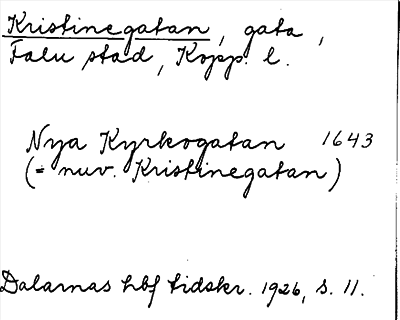 Kristinegatan, gata,
Falu stad, Kopp. l.
Nya Kyrkogatan 1643
(= nuv. Kristinegatan)
Dalarnas hbf tidskr. 1926, s. 11.